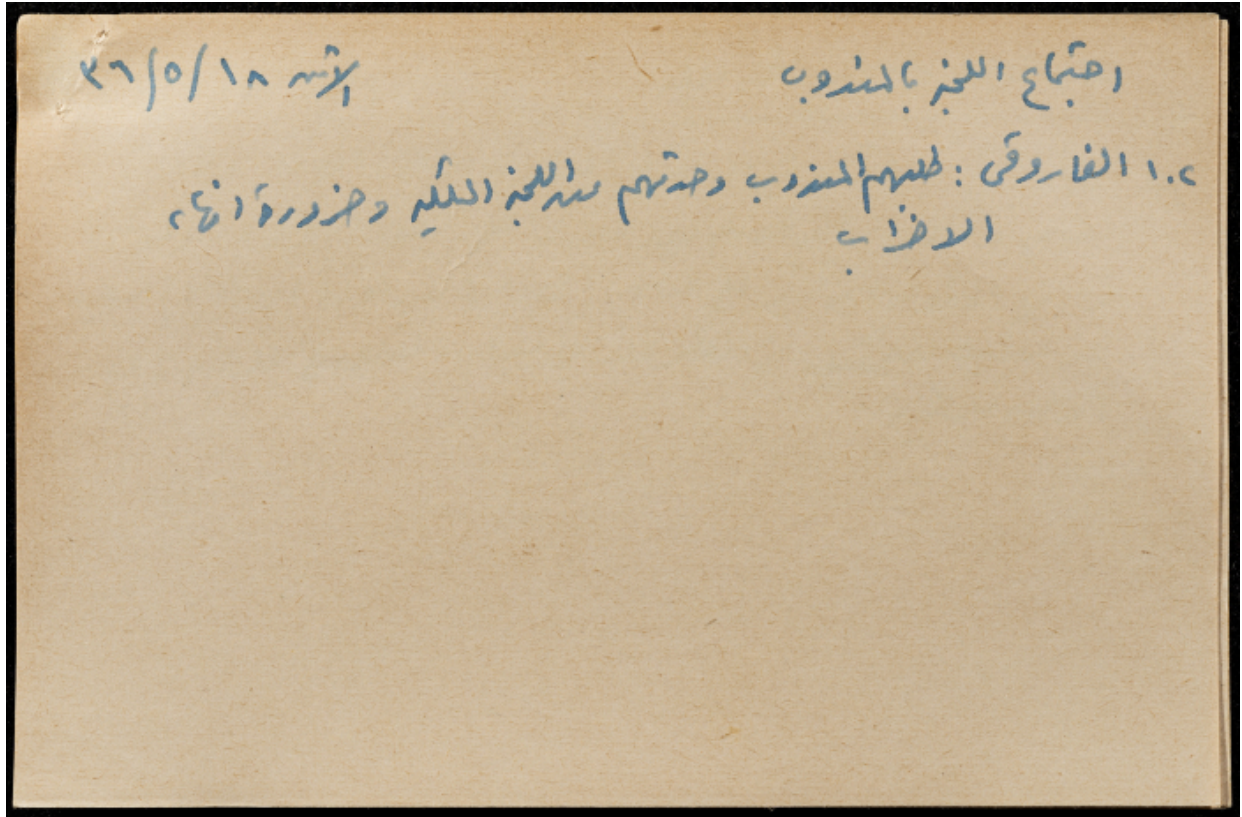 اجتماع اللجنة بالمندوب الاثنين ١٨/٥/٣٦
١٠٢ الفاروقي : طلبهم المندوب وحدثهم عن اللجنة الملكية وضرورة انهاء
الاضراب